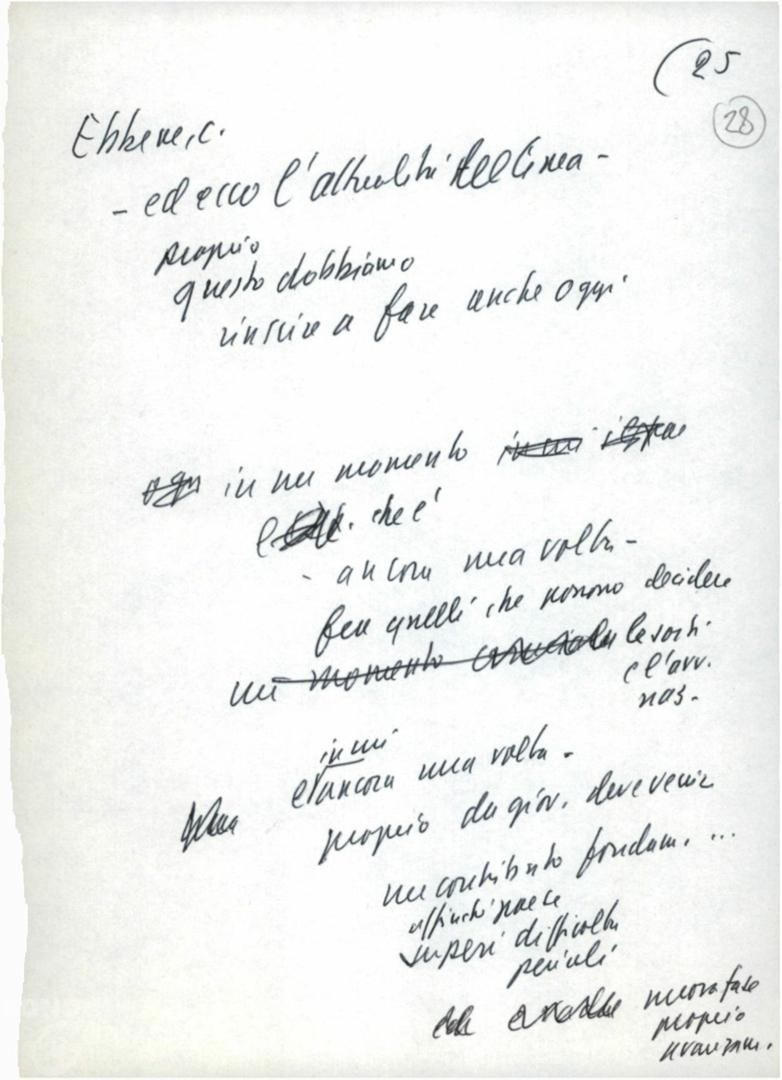 (25
28
Ebbene, c.
- ed ecco l'attualità della linea -
proprio
questo dobbiamo
riuscire a fare anche oggi
in un momento
che è
- ancora una volta -
fra quelli che possono decidere
un momento cruciale le sorti
e l'avv.
naz.
in cui
e ancora una volta -
proprio da giov. deve venire
un contributo fondam. ...
affinché paese
superi difficoltà
pericoli
ed nuova fase
proprio
avanzam.